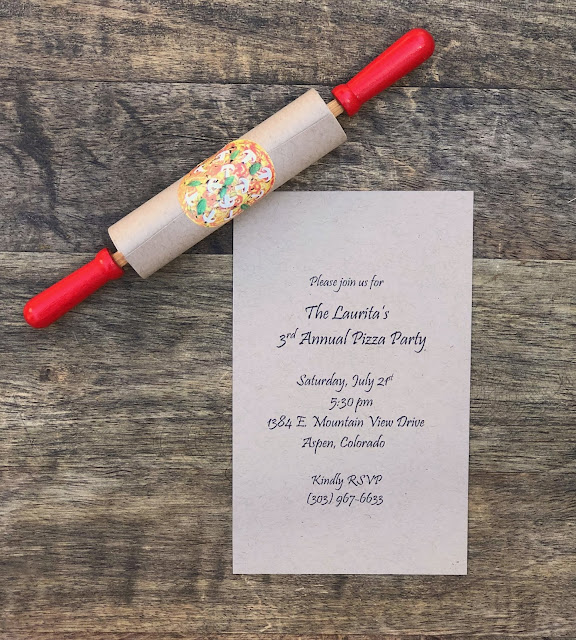 Please join us for
The Laurita's
3rd Annual Pizza Party
Saturday, July 21st
5:30 pm
1384 E. Mountain View Drive
Aspen, Colorado
Kindly RSVP
(303) 967-6633